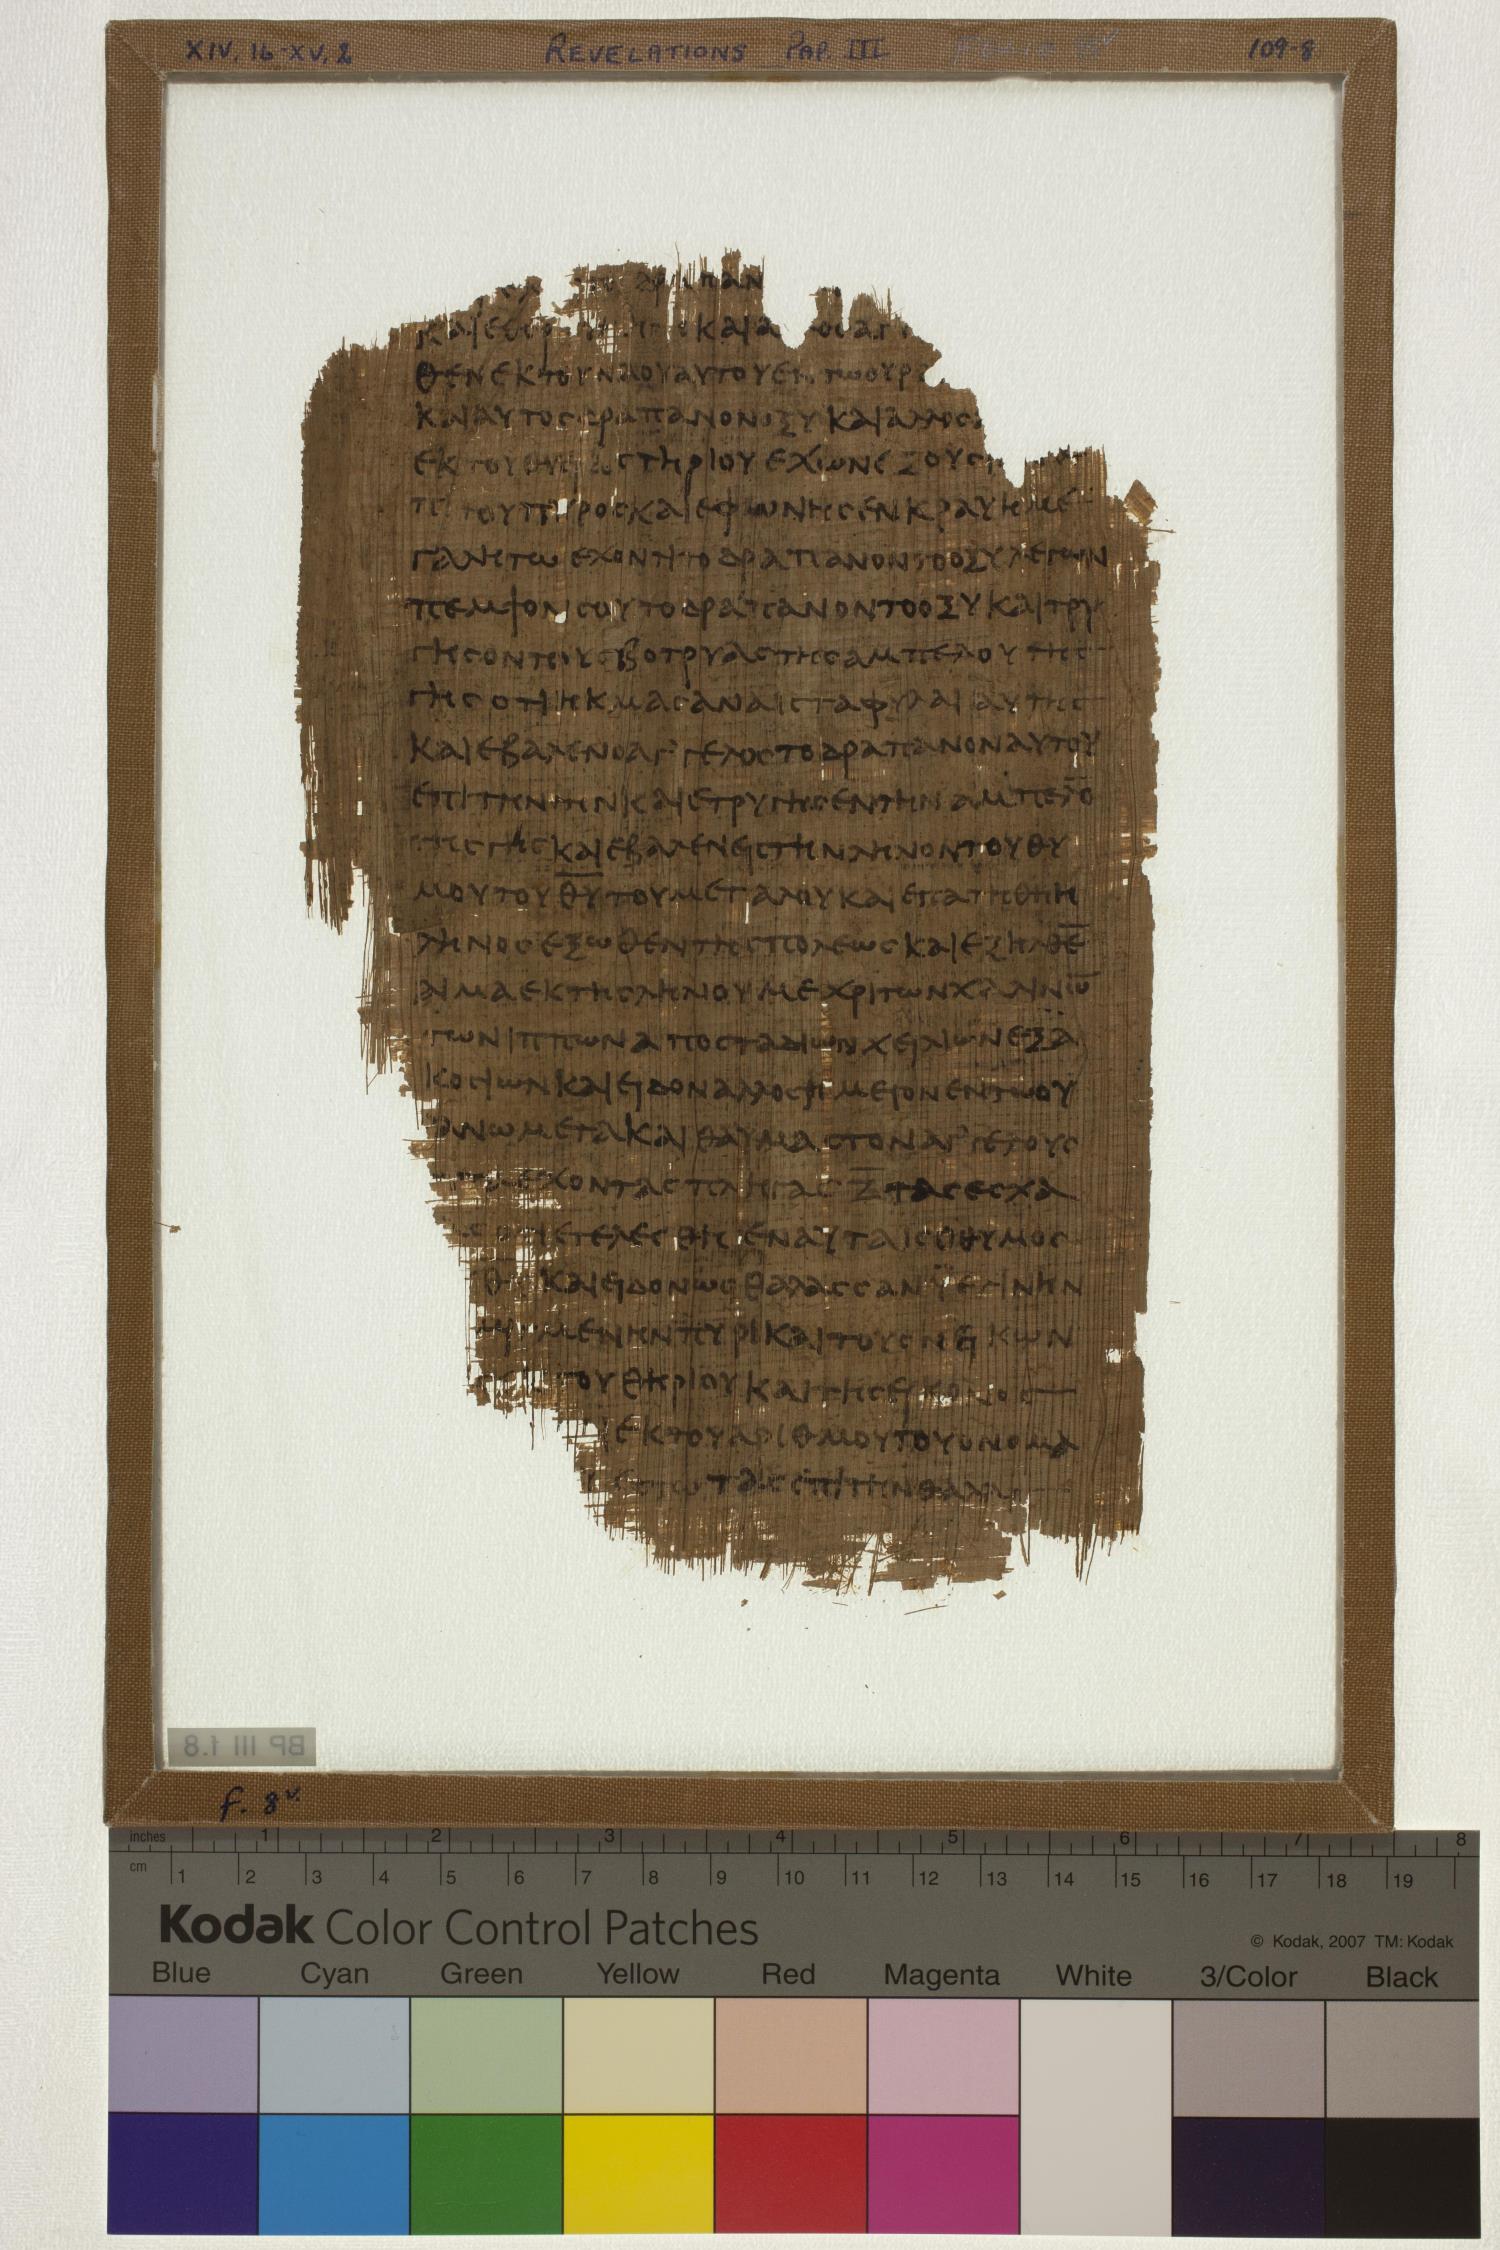 XIV, 16-XV, 2 REVELATIONS PAP. III 109-8
δρεπαν
και και α
θεν εκ του ναου αυτου εν τω ουρ
και αυτος δραπανον οξυ και αλλος
εκ του θυ στηριου εχων εξουσι
του πυρος και εφωνησεν κραυη με
γαλη τω εχοντι το δραπανον το οξυ λεγων
πεμψον σου το δραπανον το οξυ και τρυ
γησον τους βοτρυας της αμπελου της
γης οτι ηκμασαν αι σταφυλαι αυτης
και εβαλεν ο αγ᾽γελος το δραπανον αυτου
επι την γην και ετρυγησεν την αμπελο̅
της γης και εβαλεν εις την ληνον του θυ
μου του θ̅υ̅ του μεγαλου και επατηθη η
ληνος εξωθεν της πολεως και εξηλθε̅
αιμα εκ της ληνου μεχρι των χαλινω̅
των ιππων απο σταδιων χειλιων εξα
κοσιων και ειδον αλλο σημειον εν τω ου
ανω μεγα και θαυμαστον αγ᾽γελους
εχοντας πληγας ζ̅ τας εσχα
ετελεσθη εν αυταις ο θυμος
και ειδον ως θαλασσαν ϋελινην
μενην πυρι και τους νεικων
του θηριου και της εικονος
εκ του αριθμου του ονομα
εστωτας επι την θαλασ
BP III 1.8
f. 8v.
inches 1 2 3 4 5 6 7 8
cm 1 2 3 4 5 6 7 8 9 10 11 12 13 14 15 16 17 18 19
Kodak Color Control Patches © Kodak, 2007 TM: Kodak
Blue Cyan Green Yellow Red Magenta White 3/Color Black